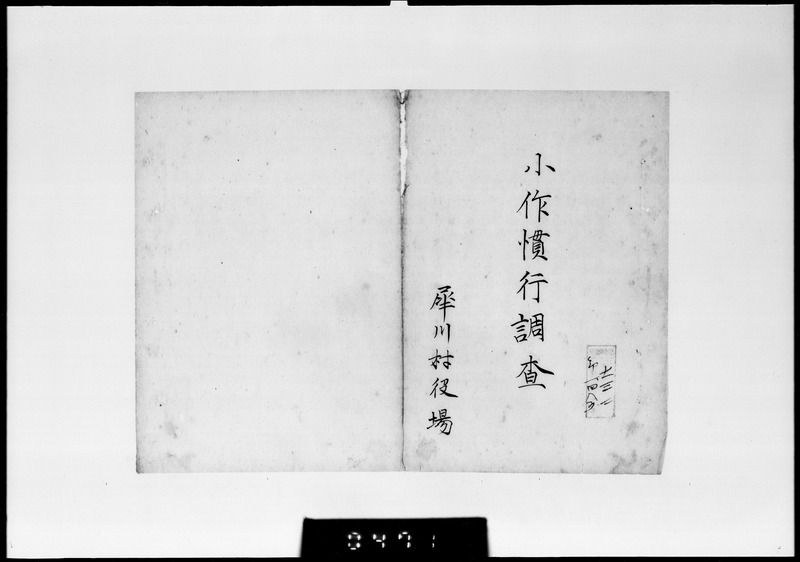 小作慣行調査
犀川村役場
0471